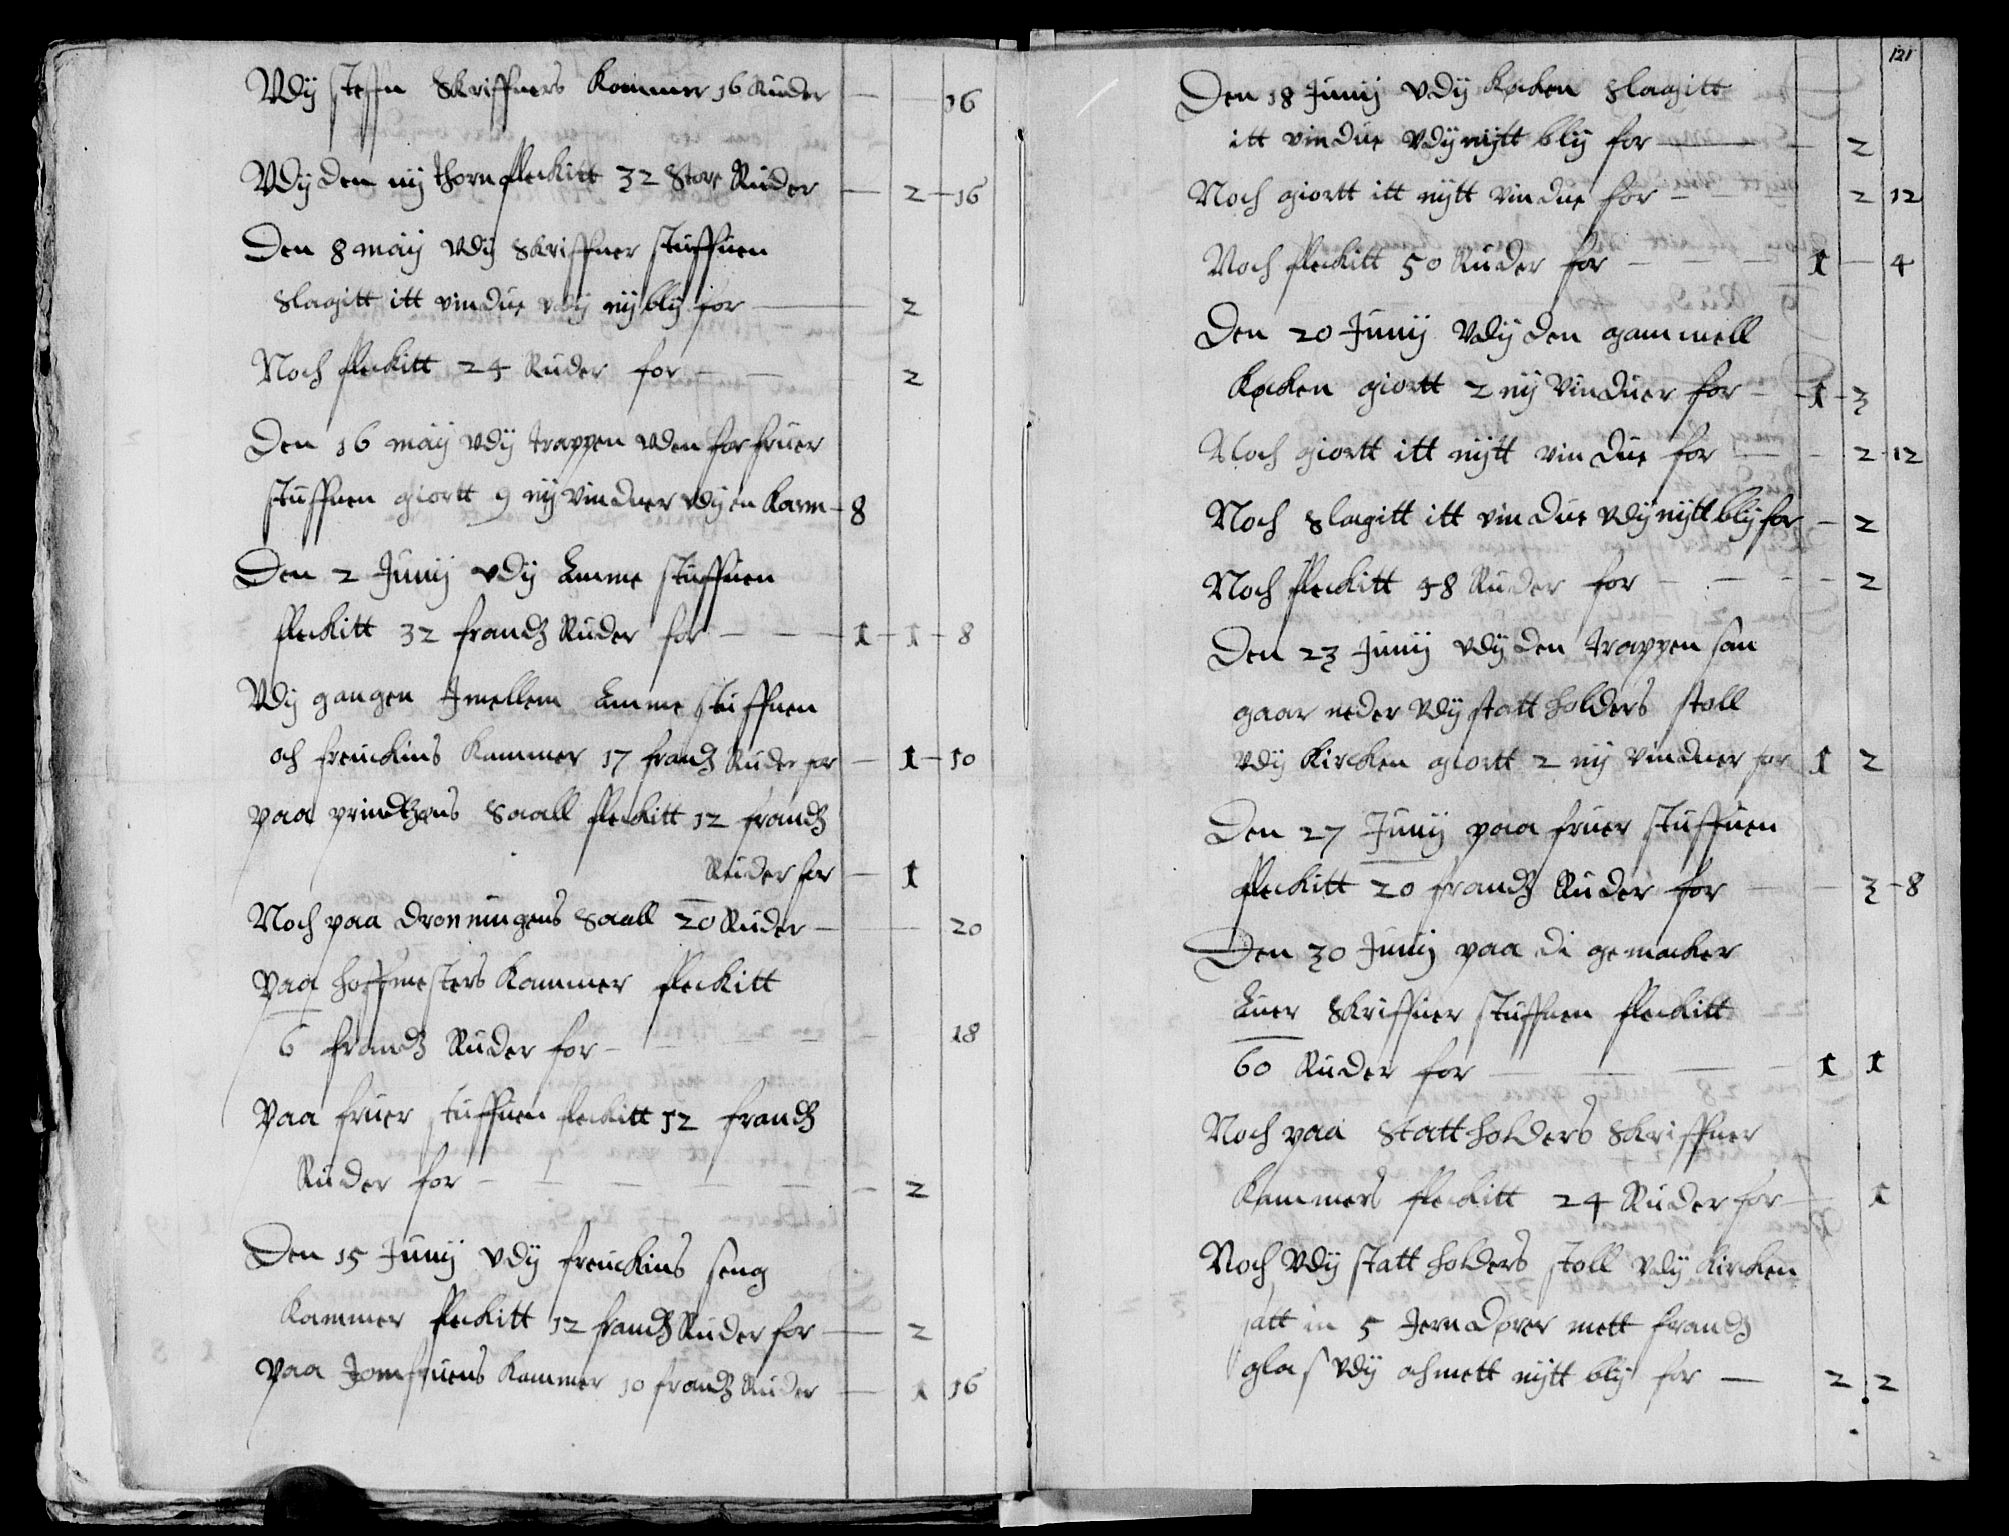 Vdij steffn Skriffuers Kammer 16 Ruder — — 16
Vdij den nij thorn fleckitt 32 Store Ruder — 2 — 16
Den 8 maij vdij Skriffuer stuffuen
Slagitt itt vindue vdij nij blij for — 2
Noch fleckitt 24 Ruder for — — 2
Den 16 maij vdij trappen vden for fruer
stuffuen giortt 9 nij vinduer vdij en Karm — 8
Den 2 Junij vdij Amme stuffuen
fleckitt 32 frandz Ruder for — — — 1 — 1 — 8
Vdij gangen Jmellem Amme stuffuen
och freuckins Kammer 17 frandz Ruder for — 1 — 10
paa prindtzens Saall fleckitt 12 frandz
Ruder for — 1
Noch paa Dronningens Saall 20 Ruder — — 20
Paa hoffmesters Kammer fleckitt
6 frandz Ruder for — — 18
Paa fruer stuffuen fleckitt 12 frandz
Ruder for — — — — — 2
Den 15 Junij vdij freuckins seng
Kammer fleckitt 12 frandz Ruder for — 2
Paa Jomfruens Kammer 10 frandz Ruder — 1 16
121
Den 18 Junij vdij Køcken Slagitt
itt vindue vdij nijtt blij for — 2
Noch giortt itt nijtt vindue for — 2 12
Noch fleckitt 50 Ruder for — — — 1 — 4
Den 20 Junij Vdij den gammell
Køcken giortt 2 nij Vinduer for — 1 — 3
Noch giortt itt nijtt vindue for — — 2 12
Noch Slagitt itt vindue vdij nijtt blij for — 2
Noch fleckitt 48 Ruder for — — — — 2
Den 23 Junij vdij den trappen som
gaar neder vdij statt holders stoll
vdij Kircken giortt 2 nij vinduer for 1 2
Den 27 Junij paa fruer stuffuen
fleckitt 20 frandz Ruder for — — 3 — 8
Den 30 Junij paa di gemacker
Auer Skriffuer stuffuen fleckitt
60 Ruder for — — — — 1 1
Noch paa Statt holders Skriffuer
Kammers fleckitt 24 Ruder for — 1
Noch Vdij statt holders stoll vdij Kircken
satt in 5 Jern Dører mett frandz
glas vdij och mett nijtt blij for — 2 2